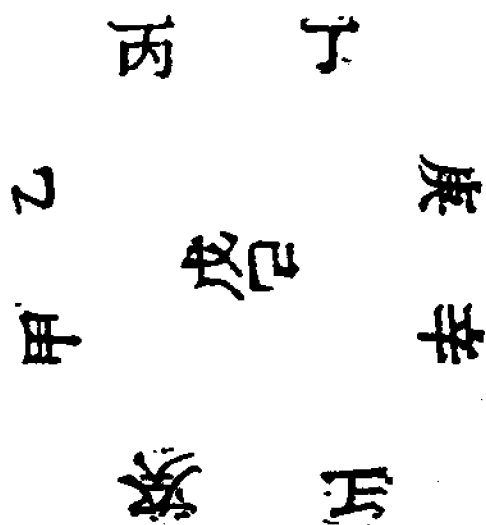 丙 丁
乙 庚
戊己
甲 辛
癸 壬